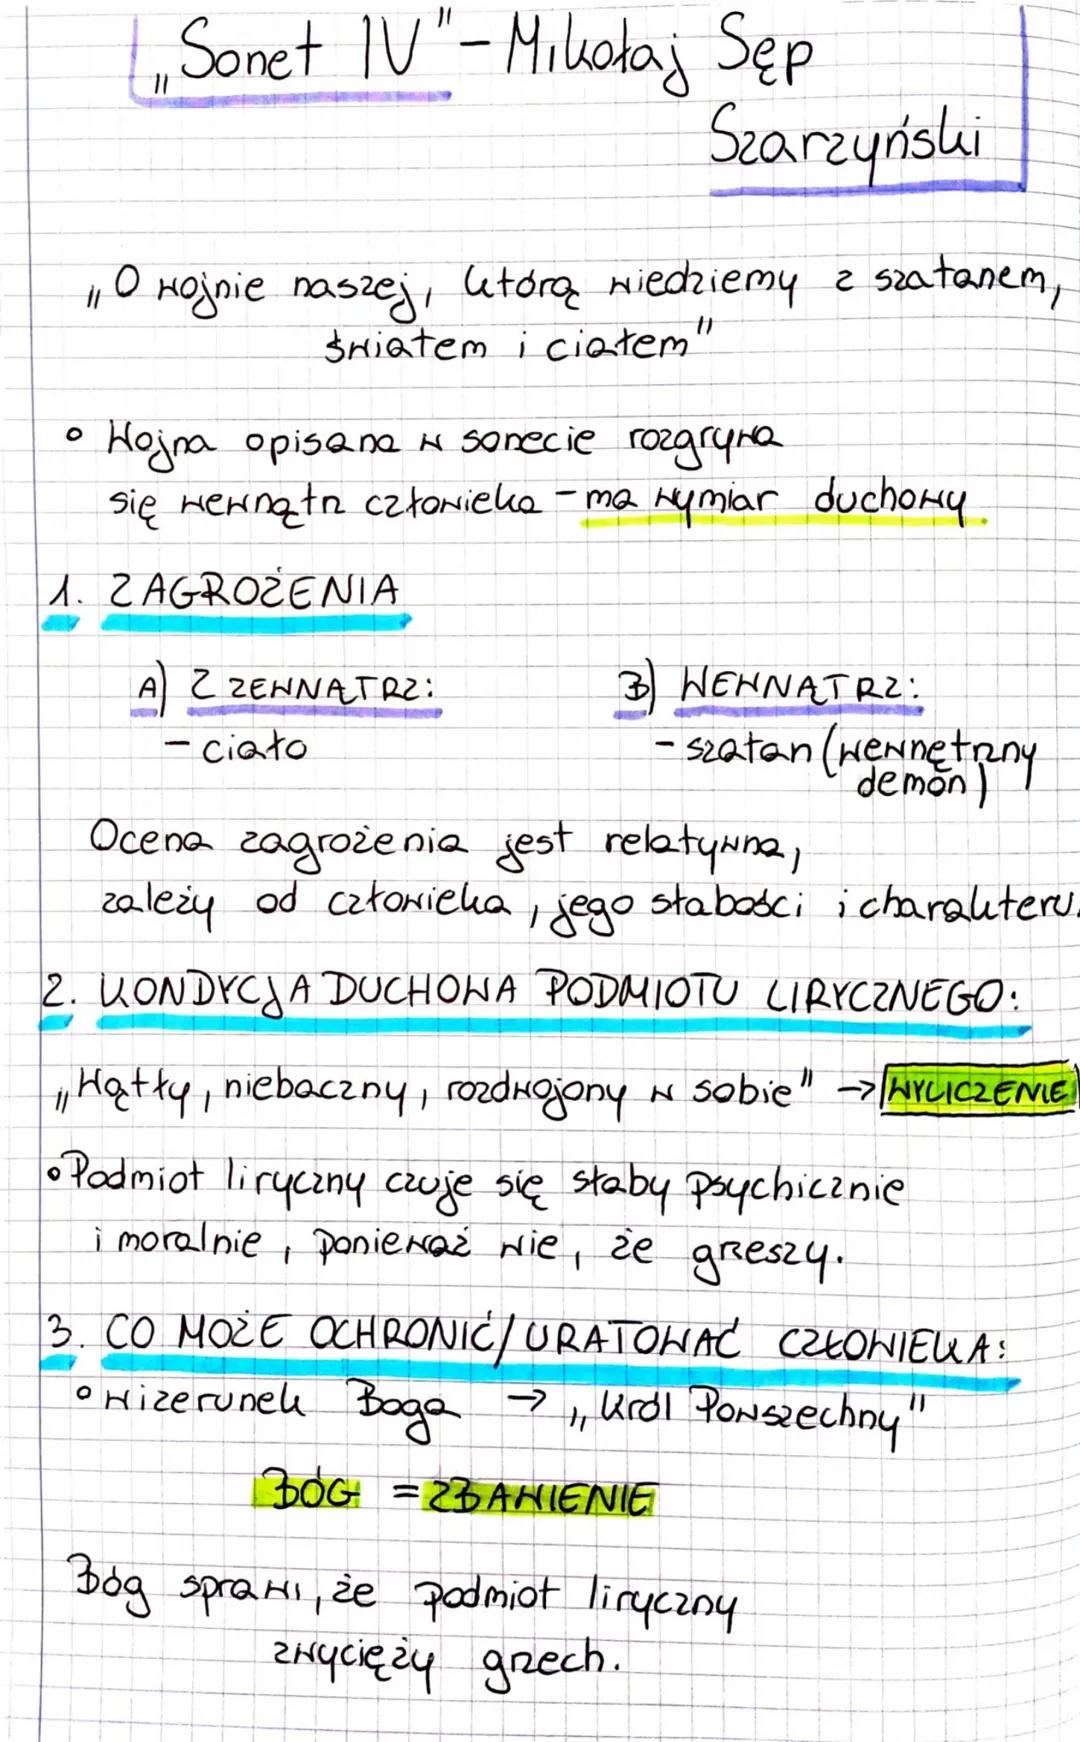 „Sonet IV" - Mikołaj Sęp
Szarzyński
„O wojnie naszej, którą wiedziemy z szatanem,
światem i ciałem"
• Wojna opisana w sonecie rozgrywa
się wewnątrz człowieka - ma wymiar duchowy
1. ZAGROŻENIA
A) Z ZEWNĄTRZ:
- ciało
B) WEWNĄTRZ:
- szatan (wewnętrzny
demon)
Ocena zagrożenia jest relatywna,
zależy od człowieka, jego słabości i charakteru.
2. KONDYCJA DUCHOWA PODMIOTU LIRYCZNEGO:
„Wątły, niebaczny, rozdwojony w sobie" → WYLICZENIE
• Podmiot liryczny czuje się słaby psychicznie
i moralnie, ponieważ wie, że grzeszy.
3. CO MOŻE OCHRONIĆ/URATOWAĆ CZŁOWIEKA:
• wizerunek Boga → „Król Powszechny"
BÓG = ZBAWIENIE
Bóg sprawi, że podmiot liryczny
zwycięży grzech.